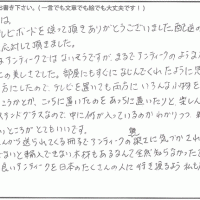 お書き下さい。(一言でも文章でも絵でも大丈夫です!)
は。
レビボードを送って頂きありがとうございました。配送
対応して頂きました。
はアンティークではないそうですが、まるでアンティークのような
この美しさでした。部屋にもすぐになじんでくれたように思
るようにしたので、テレビを置いても両方に いろんな小物を
ころかとか、こちらに置いたのをあちらに置いたりと 楽しん
スタンドグラスなので、中に何が入っているのかわかりつつ
いところがとてもいいです。
さんから送られてくる冊子でアンティークの に気づかされ
ないと輸入できない木材もあるなんて全然知らなかった
良いアンティークを日本のたくさんの人に 行き渡るよう 私も